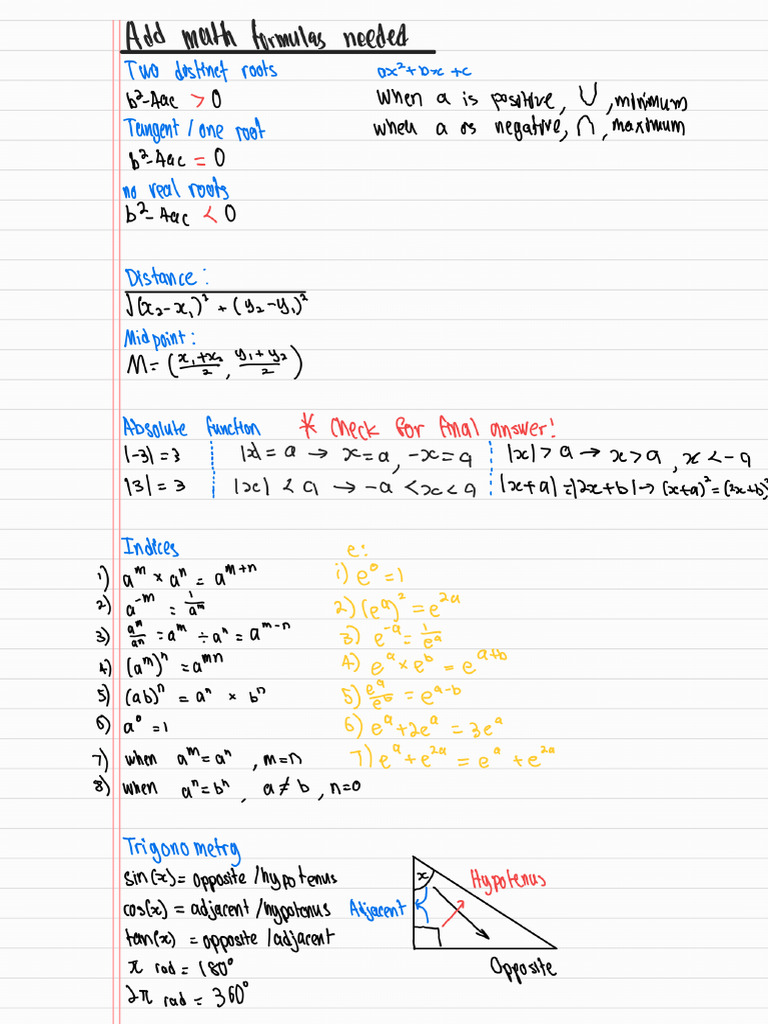 Add math formulas needed
Two distinct roots
b²-4ac > 0
Tangent / one root
b²-4ac = 0
no real roots
b²-4ac < 0
ax²+bx+c
When a is positive, ∪, minimum
when a is negative, ∩, maximum
Distance:
√(x₂-x₁)² + (y₂-y₁)²
Midpoint:
M = (x₁+x₂/2, y₁+y₂/2)
Absolute function * Check for final answer!
|-3| = 3 |x| = a → x = a, -x = a |x| > a → x > a, x < -a
|3| = 3 |x| < a → -a < x < a |x+a| = |2x+b| → (x+a)² = (2x+b)²
Indices
1) aᵐ × aⁿ = aᵐ⁺ⁿ
2) a⁻ᵐ = 1/aᵐ
3) aᵐ/aⁿ = aᵐ ÷ aⁿ = aᵐ⁻ⁿ
4) (aᵐ)ⁿ = aᵐⁿ
5) (ab)ⁿ = aⁿ × bⁿ
6) a⁰ = 1
7) when aᵐ = aⁿ, m = n
8) when aⁿ = bⁿ, a ≠ b, n = 0
e:
1) e⁰ = 1
2) (eᵃ)² = e²ᵃ
3) e⁻ᵃ = 1/eᵃ
4) eᵃ × eᵇ = eᵃ⁺ᵇ
5) eᵃ/eᵇ = eᵃ⁻ᵇ
6) eᵃ + 2eᵃ = 3eᵃ
7) eᵃ + e²ᵃ = eᵃ + e²ᵃ
Trigonometry
sin(x) = opposite / hypotenus
cos(x) = adjacent / hypotenus
tan(x) = opposite / adjacent
π rad = 180°
2π rad = 360°
x
Hypotenus
Adjacent
Opposite